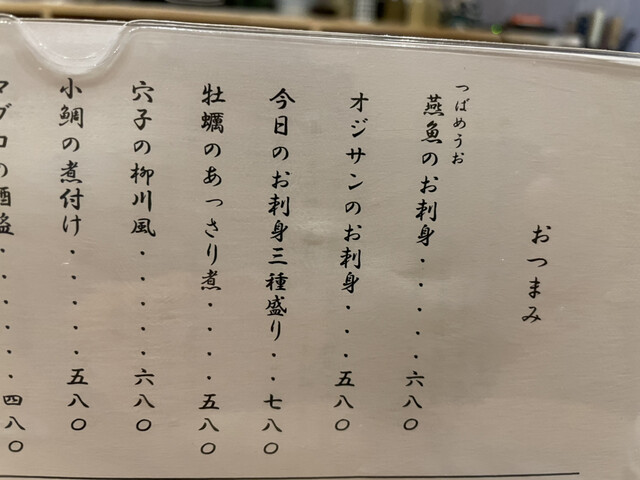 おつまみ
つばめうお
燕魚のお刺身・・・・・六八〇
オジサンのお刺身・・・五八〇
今日のお刺身三種盛り・・七八〇
牡蠣のあっさり煮・・・・五八〇
穴子の柳川風・・・・・六八〇
小鯛の煮付け・・・・・五八〇
マグロの酒盗・・・・・・四八〇